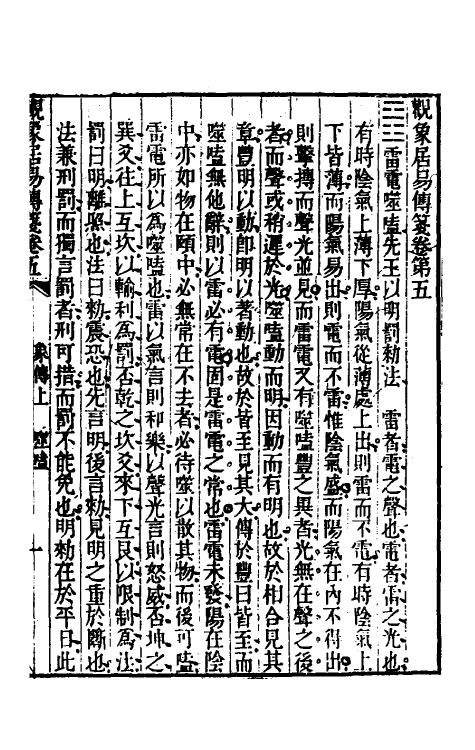 觀象居易傳箋卷第五
雷電噬嗑先王以明罰勑法　雷者電之聲也電者雷之光也
有時陰氣上薄下厚陽氣從薄處上出則雷而不電有時陰氣上
下皆薄而陽氣易出則電而不雷惟陰氣盛而陽氣在內不得出
則擊搏而聲光並見而雷電又有噬嗑豐之異者光無在聲之後
者而聲或稍遲於光噬嗑動而明因動而有明也故於相合見其
章豐明以動卽明以著動也故於皆至見其大傳於豐曰皆至而
噬嗑無他辭則以雷必有電固是雷電之常也雷電未發陽在陰
中亦如物在頤中必無常在不去者必待噬以散其物而後可嗑
雷電所以為噬嗑也雷以氣言則和樂以聲光言則怒威否坤之
巽爻往上互坎以輸利為罰否乾之坎爻來下互艮以限制為法
罰曰明離照也法曰勑震恐也先言明後言勑見明之重於斷也
法兼刑罰而獨言罰者刑可措而罰不能免也明勑在於平日此
觀象居易傳箋卷五
象傳上　噬嗑
一